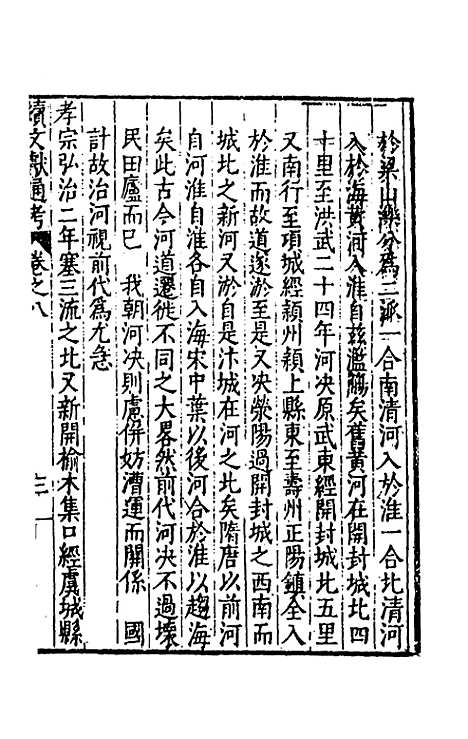 於梁山濼分爲二派一合南清河入於淮一合北清河
入於海黃河入淮自兹濫觴矣舊黃河在開封城北四
十里至洪武二十四年河决原武東經開封城北五里
又南行至項城經潁州潁上縣東至壽州正陽鎮全入
於淮而故道遂淤至是又决滎陽過開封城之西南而
城北之新河又淤自是汴城在河之北矣隋唐以前河
自河淮自淮各自入海宋中葉以後河合於淮以趨海
矣此古今河道遷徙不同之大畧然前代河决不過壞
民田廬而已 我朝河决則慮併妨漕運而關係 國
計故治河視前代爲尤急
孝宗弘治二年塞三流之北又新開榆木集口經虞城縣
續文獻通考 卷之八